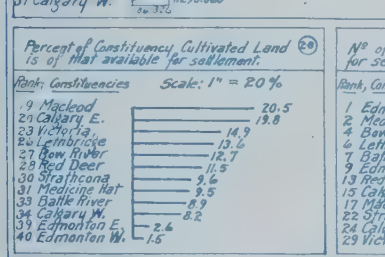 31 Calgary W.
Percent of Constituency Cultivated Land 28
is of that available for settlement.
Rank, Constituencies Scale: 1" = 20%
19 Macleod 20.5
21 Calgary E. 19.8
23 Victoria, 14.9
26 Lethbridge 13.6
27 Bow River 12.7
28 Red Deer 11.5
30 Strathcona 9.6
31 Medicine Hat 9.5
33 Battle River 8.9
34 Calgary W. 8.2
39 Edmonton E. 2.6
40 Edmonton W. 1.5
Nº of
for se
Rank, Con
1 Edm
2 Med
4 Bow
6 Leth
7 Bat
9 Edm
13 Red
15 Cal
17 Mac
22 Str
24 Calg
29 Vict